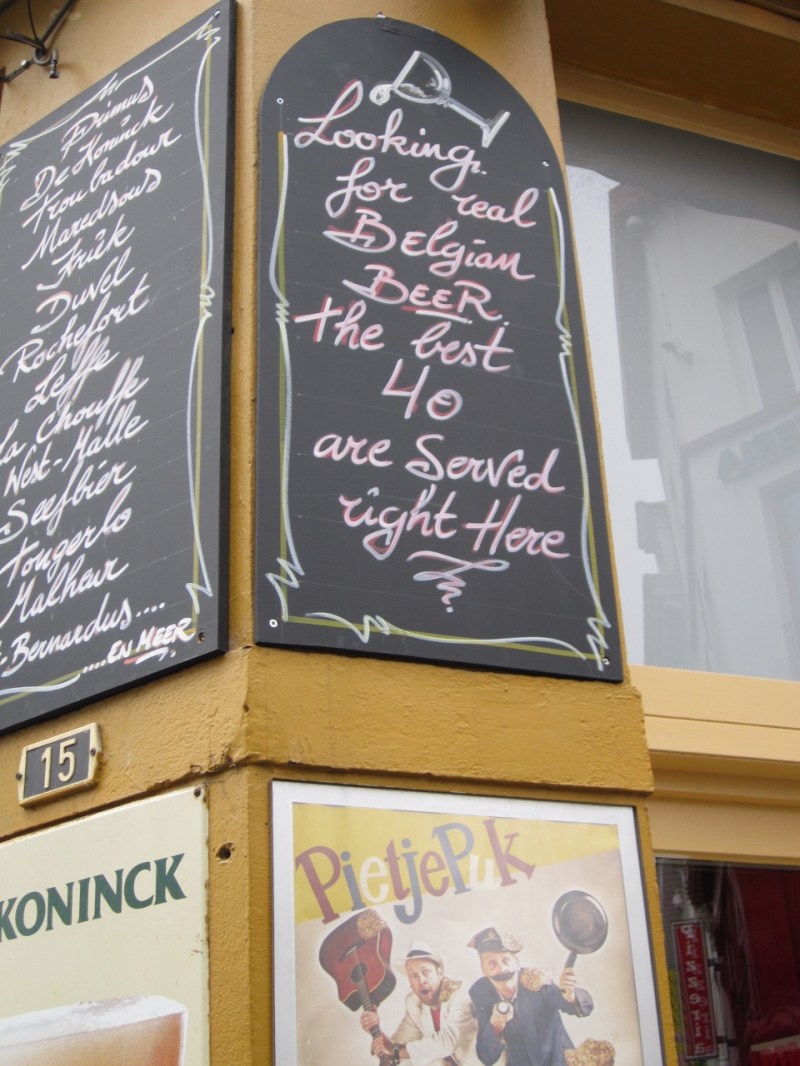 Primus
De Koninck
Troubadour
Maredsous
Kriek
Duvel
Rochefort
Leffe
La Chouffe
West-Malle
Seefbier
Tongerlo
Malheur
-Bernardus....
....EN MEER
Looking
for real
BElgian
BEER.
the best
40
are Served
right Here
15
KONINCK
PietjePuk
pizzeria